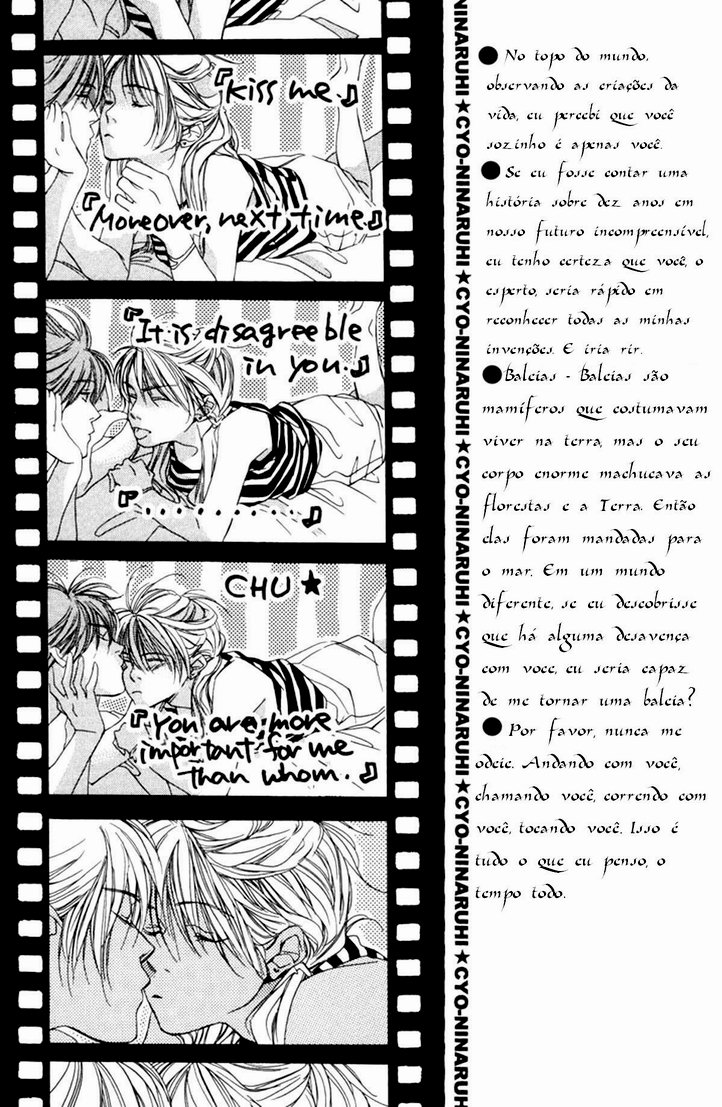 『Kiss me.』
『Moreover, next time.』
『It is disagreeable
in you.』
『..........』
CHU★
『You are more
important for me
than whom.』
NINARUHI★CYO-NINARUHI★CYO-NINARUHI★CYO-NINARUHI★CYO-NINARUHI★CYO-NINARUHI★CYO-NINARUHI
● No topo do mundo,
observando as criações da
vida, eu percebi que você
sozinho é apenas você.
● Se eu fosse contar uma
história sobre dez anos em
nosso futuro incompreensível,
eu tenho certeza que você, o
esperto, seria rápido em
reconhecer todas as minhas
invenções. E iria rir.
●Baleias - Baleias são
mamíferos que costumavam
viver na terra, mas o seu
corpo enorme machucava as
florestas e a Terra. Então
elas foram mandadas para
o mar. Em um mundo
diferente, se eu descobrisse
que há alguma desavença
com voce, eu seria capaz
de me tornar uma baleia?
● Por favor, nunca me
odeie. Andando com você,
chamando você, correndo com
você, tocando você. Isso é
tudo o que eu penso, o
tempo todo.